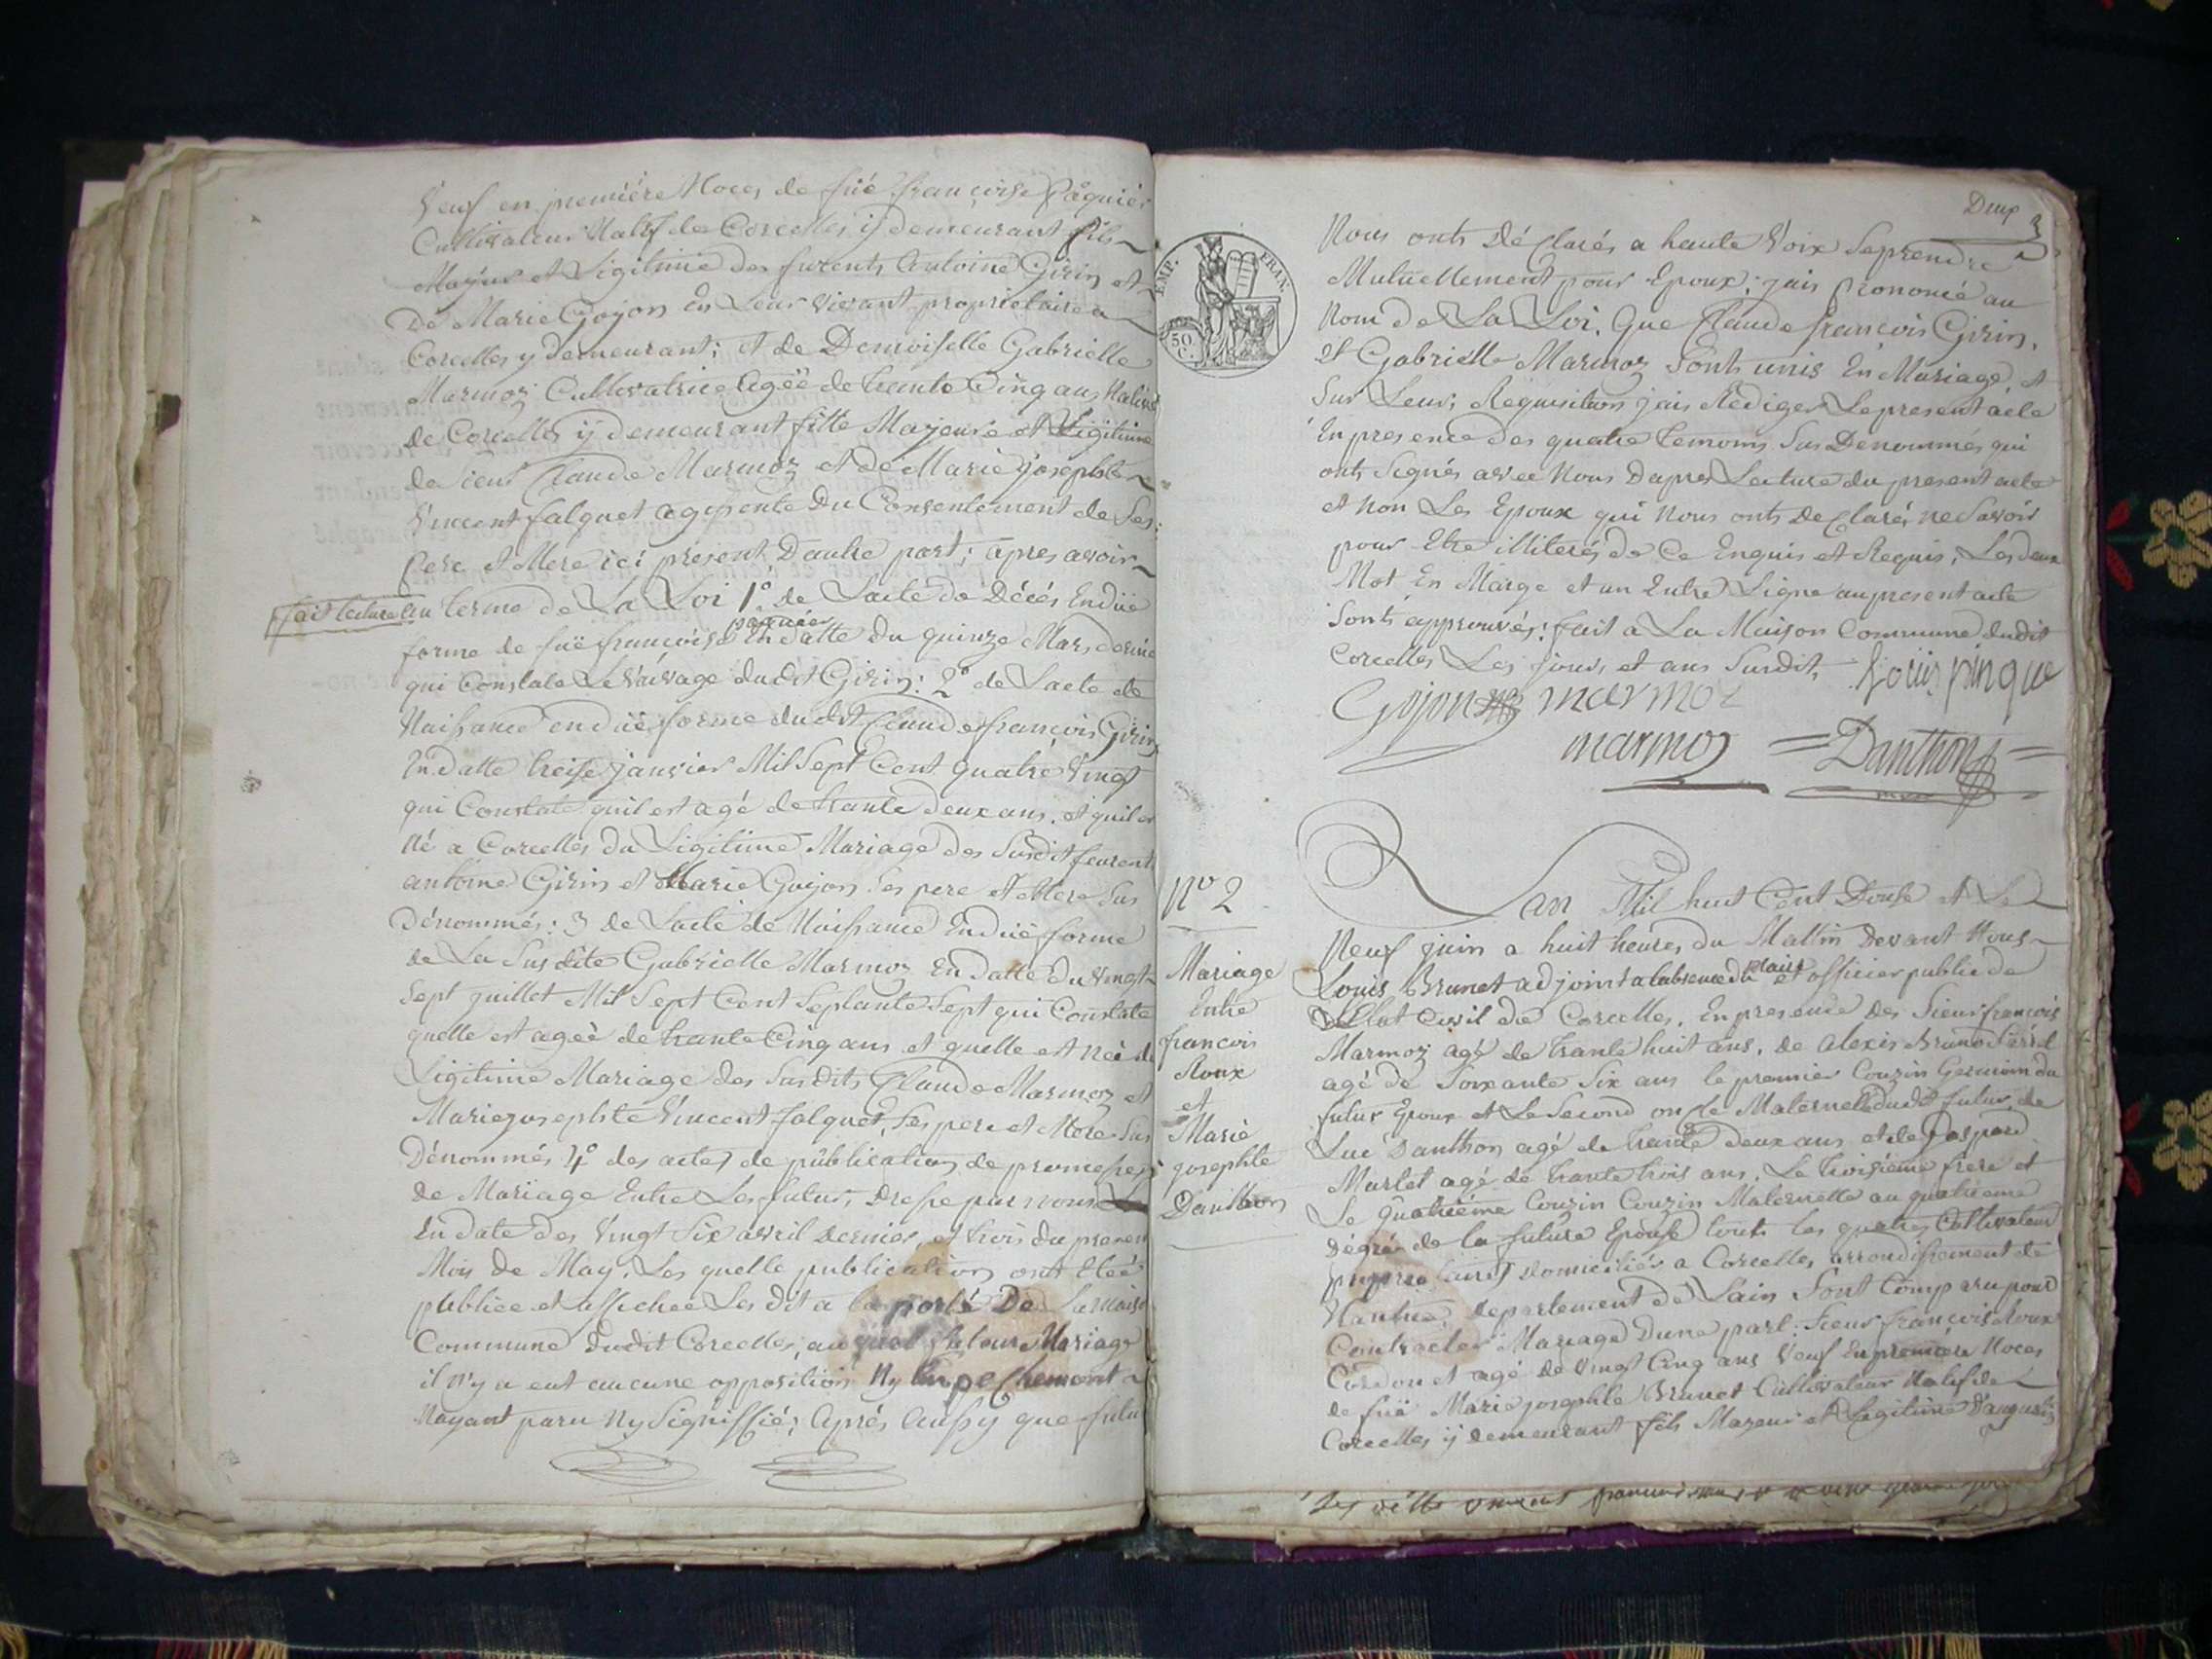 Veuf en première Noces de füe françoise Pàquier
Cultivateur Natif de Corcelles ÿ demeurant fils
Majeur et Ligitime des furents Antoine Girin et
De Marie Gojon En Leur Vivant propriétaire a
Corcelles y demeurant; et de Demoiselle Gabrielle
Marmoz Cultivatrice Agéë de trante Cinq ans Native
de Corcelles ÿ demeurant fille Majeure et Ligitime
de Sieur Claude Marmoz et de Marie josephte
Vincent falquet agissente Du Consentement de Ses
Pere et Mere ici présent, Dautre part; apres avoir
fait lecture au terme de La Loi 1° de Lacte de Décés En düe
paquier
forme de füe françoise En datte du quinze Mars dernie
qui Constate Le Vaivage dudit Girin: 2° de Lacte de
Naissance en düe forme dudit Claude françois Girin
En datte treise janvier Mil Sept Cent quatre Vingt
qui Constate quil est agé de trante deux ans, et quil es
Né a Corcelles du Ligitime Mariage des Susdit feurent
antoine Girin et Marie Gojon Ses pere et Mere Sus
Dénommés: 3 de Lacte de Naissance En düe forme
de La Sus dite Gabrielle Marmoz En datte du Vingt
Sept juillet Mil Sept Cent Septante Sept qui Constate
quelle est ageè de trante Cinq ans et quelle est Née du
Ligitime Mariage des Sus dits Claude Marmoz et
Marie josephte Vincent falquet, Ses pere et Mere Sus
Dénommés 4° des actes de publication de promesses
de Mariage Entre Les futur, Dressé par nous
En date des Vingt Six avril Dernier, et trois du present
Mois de May, Les quelle publication ont Etéé
publiée et affichée Les dit a la porte De La Maison
Commune dudit Corcelles, au quel futur Mariage
il n'y a eut aucune opposition Ny Empechement
Nayant paru Ny Signiffié; Aprés Aussy que futu
Deux
3
EMP. FRAN.
50 C.
Nous onts Déclarés a haute Voix Se prendre
Mutuellement pour Epoux; jais Prononcé au
Nom de La Loi, Que Claude françois Girin,
et Gabrielle Marmoz Sont unis En Mariage, et
Sur Leurs Requisition jais Rediger Le present acte
En presence des quatre temoins Sus Denommés qui
onts Signés avec Nous Dapres Lecture du present acte
et Non Les Epoux qui Nous onts Declaré, ne Savoir
pour Etre illiterés de Ce Enquis et Requis, Les deux
Mot En Marge et un Entre Ligne au present acte
Sonts approuvés: fait a La Maison Commune dudit
Corcelles Les jours, et ans Surdit,
Louis pingue
Gojon marmoz
marmoz = Danthon =
N° 2
Mariage
Entre
francois
Roux
et
Marie
josephte
Danthon
Lan Mil huit Cent Douse et Le
Neuf juin a huit heures du Mattin Devant Nous
Louis Brunet adjoint a labsence du maire et officier public de
L'Etat Civil de Corcelles, En presence des Sieur francois
Marmoz agé de trante huit ans, de Alexis Brunet
agé de Soixante Six ans le premier Couzin Germain du
futur Epoux et Le Second oncle Maternelle dudit futur, de
Luc Danthon agé de trante deux ans et de Gaspard
Martet agé de trante trois ans, Le troisieme frere et
Le quatriéme Couzin Couzin Maternelle au quatrieme
Dégrée de la future Epouse touts les quatres Cultivateur
propriétaires Domiciliés a Corcelles arrondissement de
Nantua, departement de Lain Sont Comparu pour
Contracter Mariage Dune part: Sieur francois Roux
agé de Vingt Cinq ans Veuf En premiére Noces
de füe Marie josephte Brunet Cultivateur Natif de
Corcelles ÿ demeurant fils Majeur et Legitime